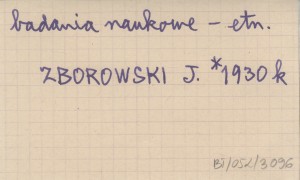 badania naukowe – etn.
ZBOROWSKI J. *1930 k
BJ/052/3096